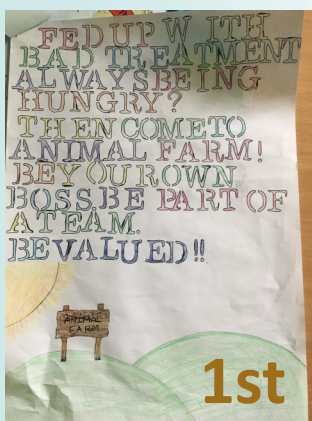 FED UP WITH
BAD TREATMENT
ALWAYS BEING
HUNGRY?
THEN COME TO
ANIMAL FARM!
BE YOUR OWN
BOSS. BE PART OF
A TEAM.
BE VALUED!!
ANIMAL
FARM
1st